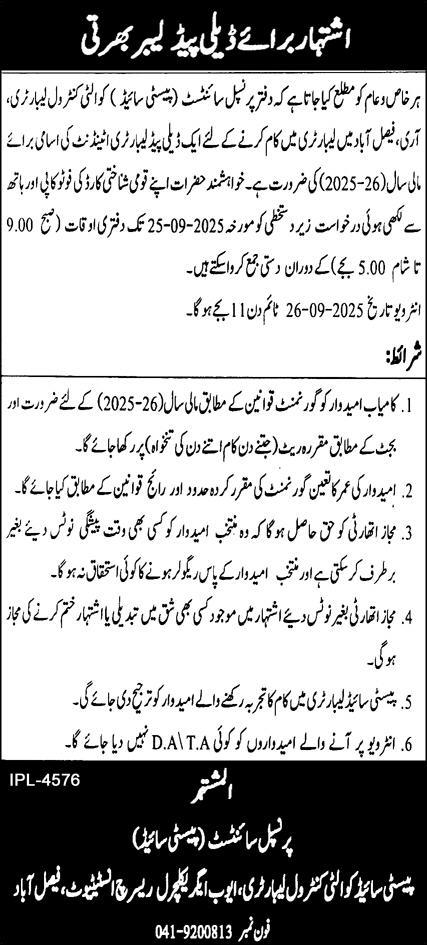 اشتہار برائے ڈیلی پیڈ لیبر بھرتی
ہر خاص و عام کو مطلع کیا جاتا ہے کہ دفتر پرنسپل سائنٹسٹ (پیسٹی سائیڈ) کوالٹی کنٹرول لیبارٹری،
آری، فیصل آباد میں لیبارٹری میں کام کرنے کے لئے ایک ڈیلی پیڈ لیبارٹری اٹینڈنٹ کی اسامی برائے
مالی سال (2025-26) کی ضرورت ہے۔ خواہشمند حضرات اپنے قومی شناختی کارڈ کی فوٹو کاپی اور ہاتھ
سے لکھی ہوئی درخواست زیر دستخطی کو مورخہ 25-09-2025 تک دفتری اوقات (صبح 9.00
تا شام 5.00 بجے) کے دوران دستی جمع کروا سکتے ہیں۔
انٹرویو تاریخ 26-09-2025 ٹائم دن 11 بجے ہو گا۔
شرائط:
1. کامیاب امیدوار کو گورنمنٹ قوانین کے مطابق مالی سال (2025-26) کے لئے ضرورت اور
بجٹ کے مطابق مقررہ ریٹ (جتنے دن کام اتنے دن کی تنخواہ) پر رکھا جائے گا۔
2. امیدوار کی عمر کا تعین گورنمنٹ کی مقرر کردہ حدود اور رائج قوانین کے مطابق کیا جائے گا۔
3. مجاز اتھارٹی کو حق حاصل ہو گا کہ وہ منتخب امیدوار کو کسی بھی وقت پیشگی نوٹس دیئے بغیر
برطرف کر سکتی ہے اور منتخب امیدوار کے پاس ریگولر ہونے کا کوئی استحقاق نہ ہو گا۔
4. مجاز اتھارٹی بغیر نوٹس دیئے اشتہار میں موجود کسی بھی شق میں تبدیلی یا اشتہار ختم کرنے کی مجاز
ہو گی۔
5. پیسٹی سائیڈ لیبارٹری میں کام کا تجربہ رکھنے والے امیدوار کو ترجیح دی جائے گی۔
6. انٹرویو پر آنے والے امیدواروں کو کوئی D.A\T.A نہیں دیا جائے گا۔
IPL-4576
المشتہر
پرنسپل سائنٹسٹ (پیسٹی سائیڈ)
پیسٹی سائیڈ کوالٹی کنٹرول لیبارٹری، ایوب ایگریکلچرل ریسرچ انسٹیٹیوٹ، فیصل آباد
فون نمبر 041-9200813